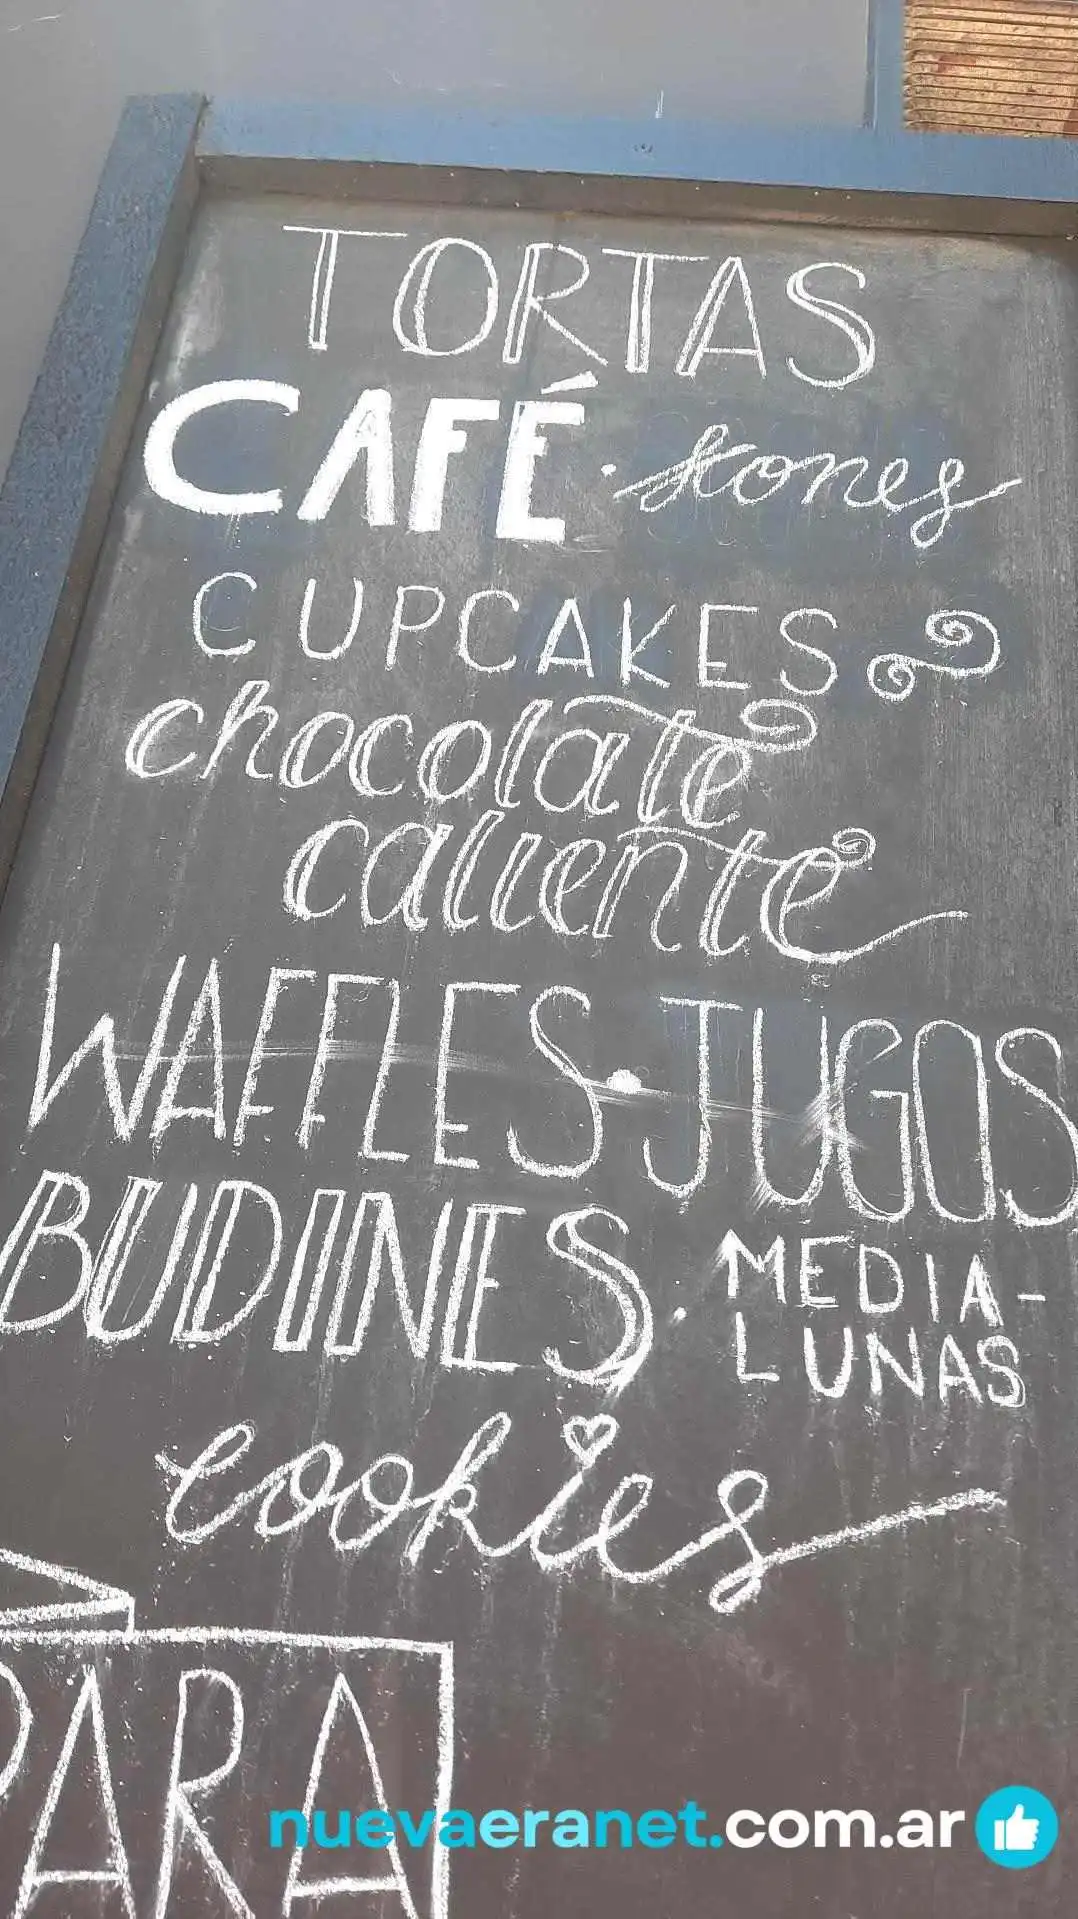 TORTAS
CAFÉ · scones
CUPCAKES
chocolate
caliente
WAFFLES · JUGOS
BUDINES · MEDIA-
LUNAS
cookies
PARA
nuevaeranet.com.ar